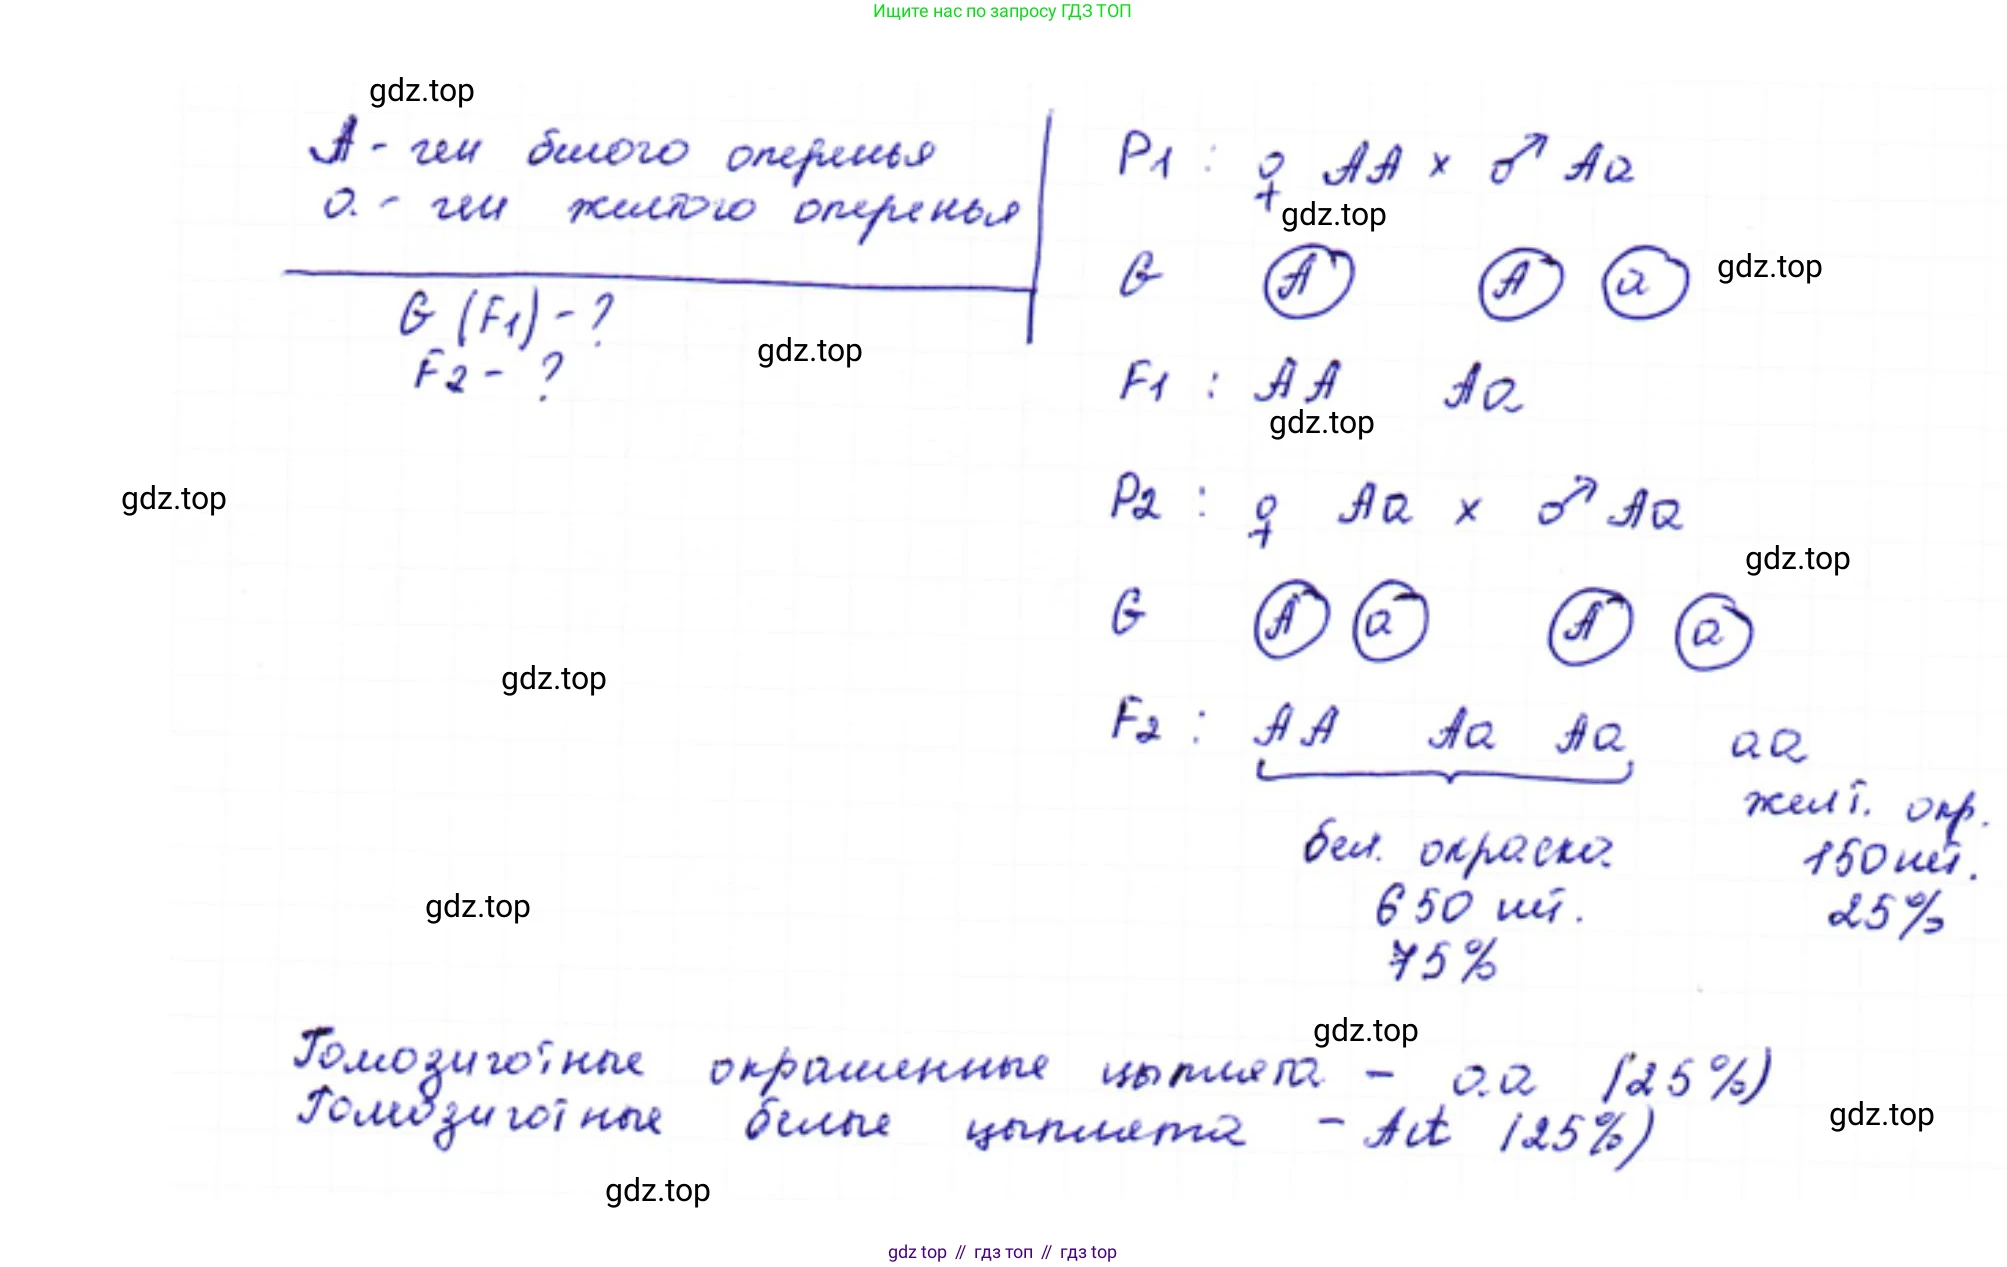 Ищите нас по запросу ГДЗ ТОП
gdz.top
А - ген белого оперенья
а - ген желтого оперенья
G (F1) - ?
F2 - ?
gdz.top
gdz.top
gdz.top
gdz.top
gdz.top
P1 : ♀ AA × ♂ Aa
gdz.top
gdz.top
G A A a
F1 : AA Aa
gdz.top
P2 : ♀ Aa × ♂ Aa
gdz.top
G A a A a
F2 : AA Aa Aa aa
желт. окр.
150 шт.
25%
бел. окраска
650 шт.
75%
gdz.top
Гомозиготные окрашенные цыплята - aa (25%)
Гомозиготные белые цыплята - AA (25%)
gdz.top
gdz.top
gdz top // гдз топ // гдз top